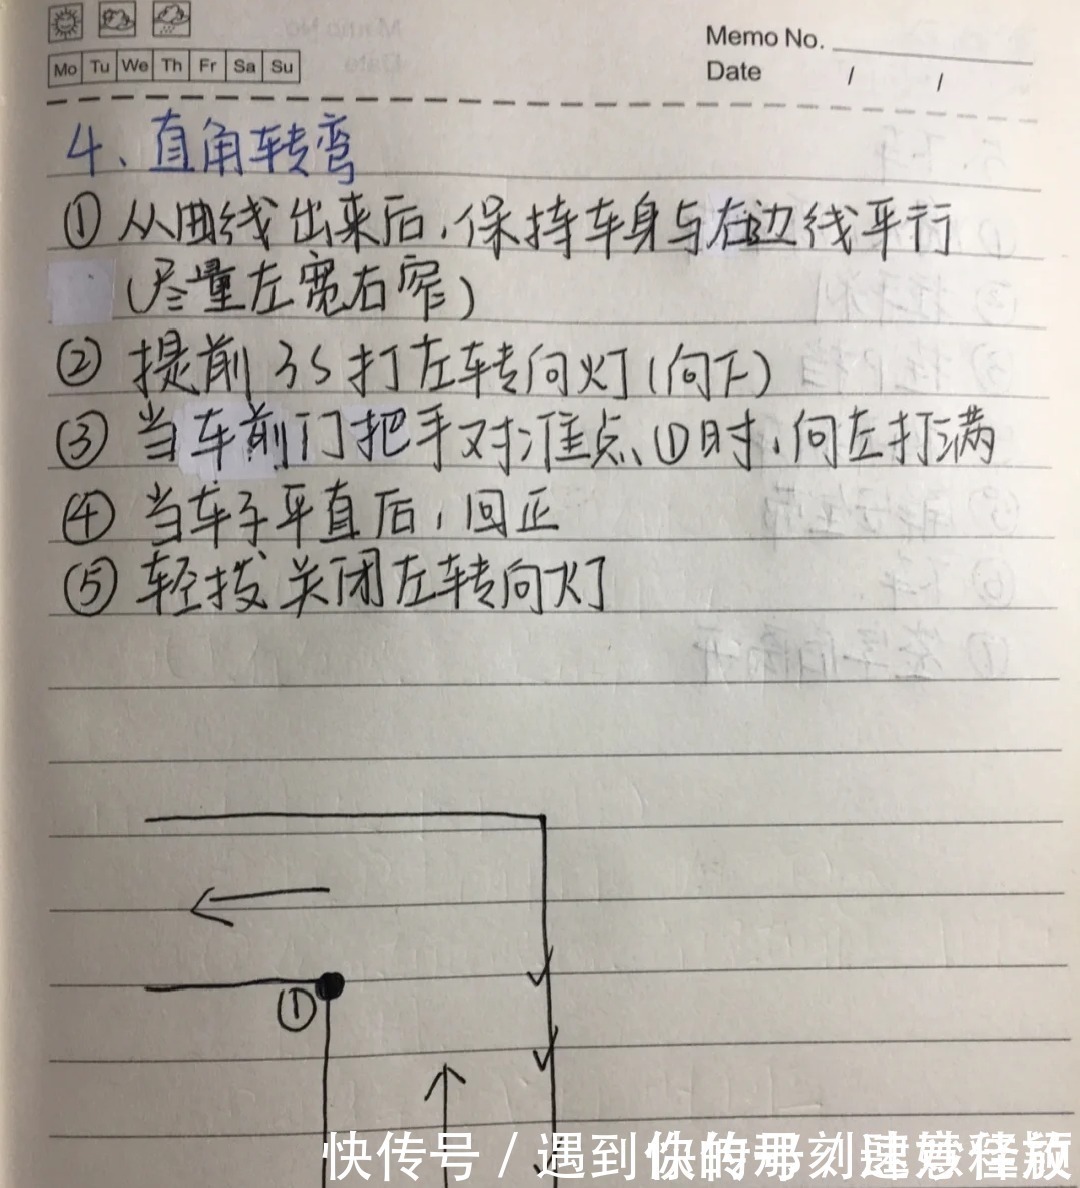 Memo No.
Date / /
Mo Tu We Th Fr Sa Su
4、直角转弯
① 从曲线出来后,保持车身与右边线平行
(尽量左宽右窄)
② 提前3S打左转向灯(向下)
③ 当车前门把手对准点①时,向左打满
④ 当车子平直后,回正
⑤ 轻拨关闭左转向灯
①
快传号 / 遇到你的那